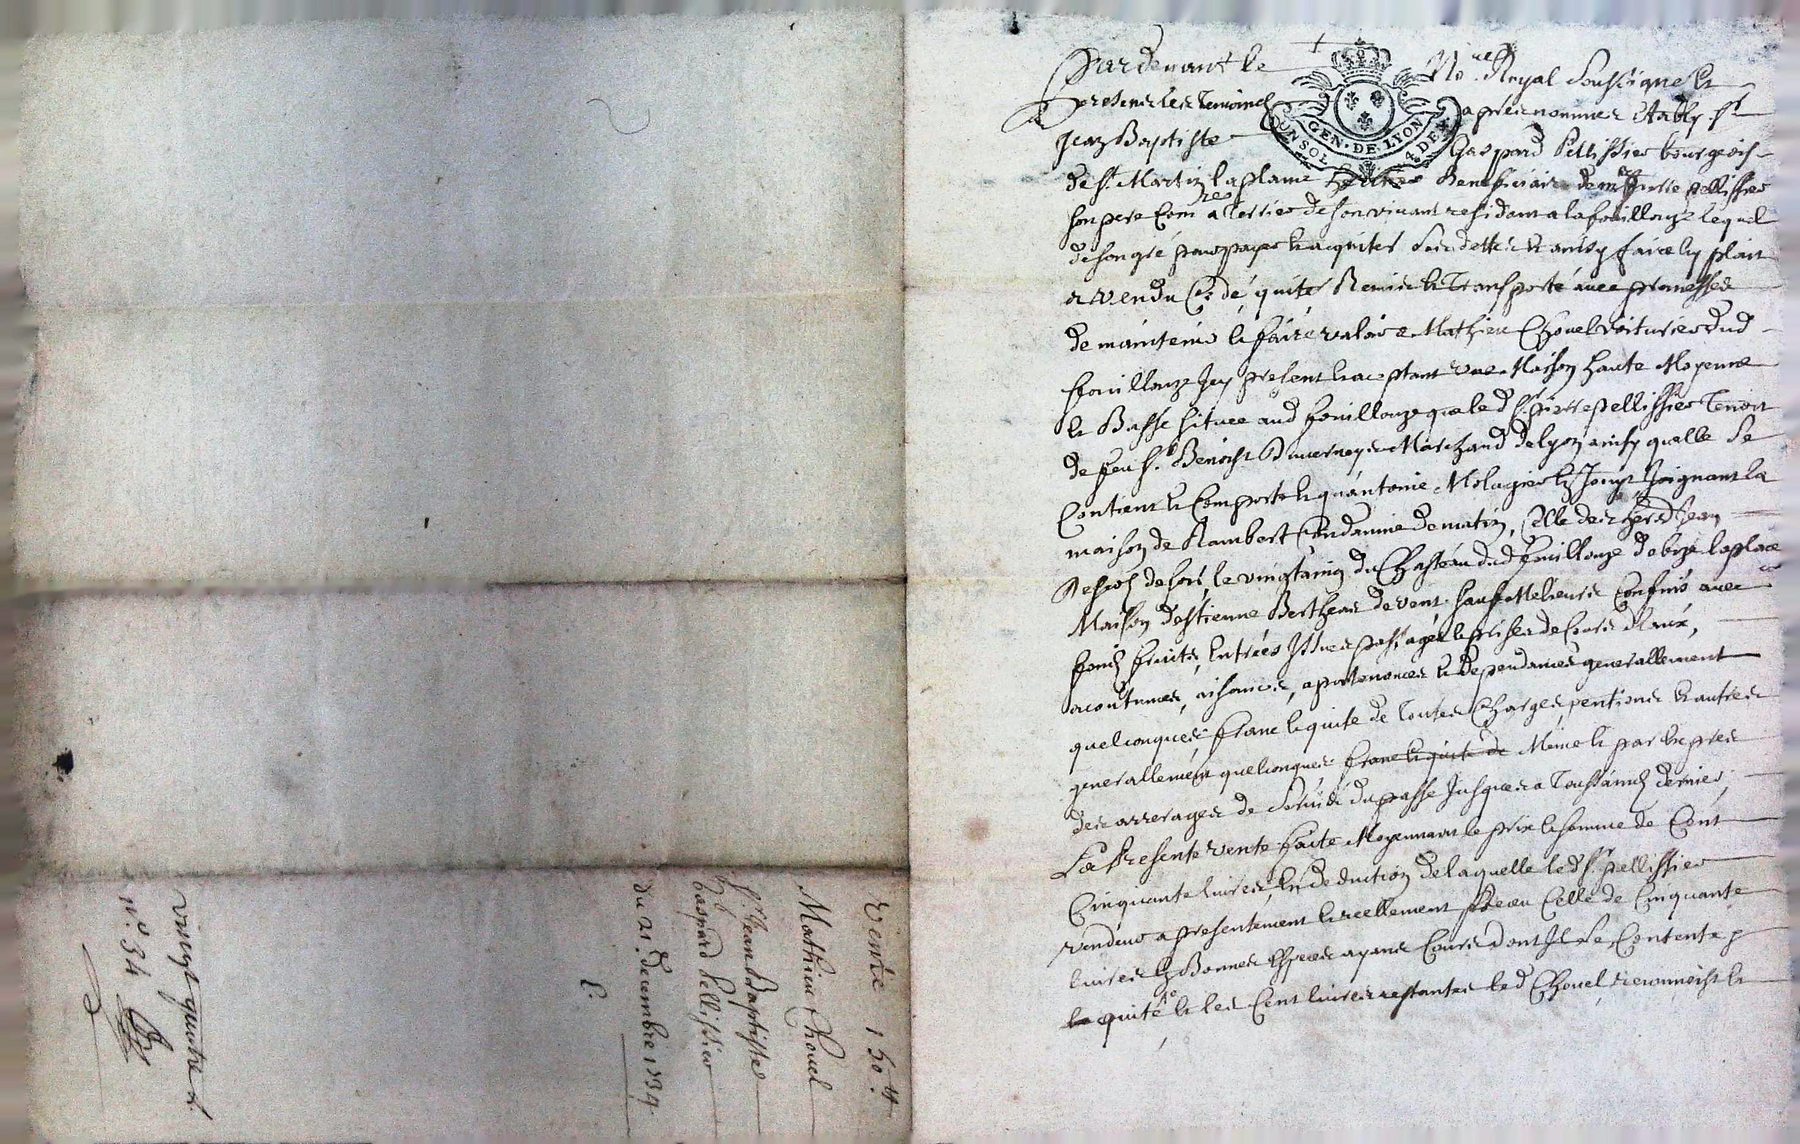 Pardevant le No.re Royal soussigné et
presens les temoins apres nommes Estably sr
Jean Baptiste Gaspard Pellissier bourgeois
GEN. DE LYON
CONSOL 4. DE
de st Martin laplaine Beneficiaire de pellissier
son pere Com.re a Terrier de son vivant residant a lafouillouze lequel
de son gré pour payer et aquiter ses dettes et ainsy faire luy plait
a vendu Cedé quité Remis et Transporté avec promesses
de maintenir et faire valoir a Mathieu Chovel voiturier dud
fouillouze Icy present et aceptant une Maison haute Moyenne
et Basse située aud fouillouze que led sr pierre pellissier Tenoit
de feu sr Benoist Duverney Marchand de Lyon ainsy quelle se
Contient et Comporte et quantonie Molagier En Jouyt Joignant la
maison de Rambert de matin, Celle des Jean
de soir, le vingtain du Chasteau dud fouillouze de bize laplace
Maison destienne de vent sauf Melieurs Confins avec
fonds fruits, Entrées Issues passages et prises de Cours
acoutumés, aisances, apartenances et dependances generallement
quelconques, franc et quite de Toutes Charges pentions et autres
generallement quelconques franc et quite de Même et par Exprès
des arrerages de servis du passé Jusques a Toussaints dernier,
La Presente vente faite Moyennant le prix et somme de Cent
Cinquante livres, En deduction de laquelle led sr pellissier
vendeur a presentement et reellement receu Celle de Cinquante
livres En Bonnes Especes ayans Cours dont Il se Contente
et quite et les Cent livres restantes led Chovel reconnoist et
Vente 150.lt
Mathieu Chovel
sr Jean Baptiste
Gaspard Pellissier
du 21.e decembre 1734
vingt quatre
n.o 34